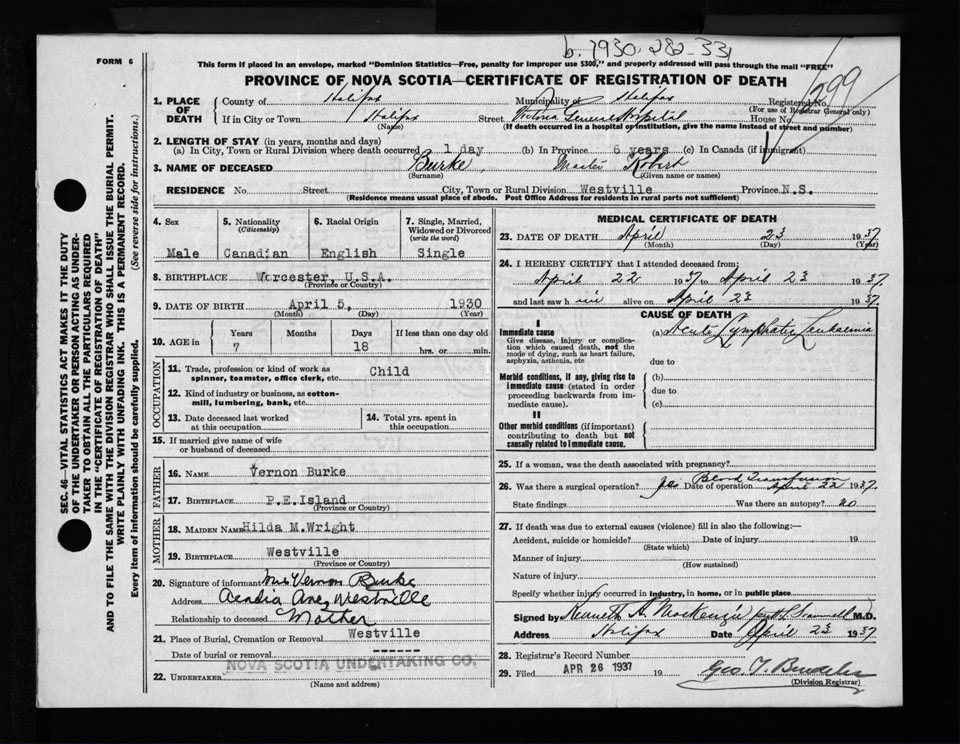 b. 1930-282-331
FORM 6
This form if placed in an envelope, marked "Dominion Statistics—Free, penalty for improper use $300," and properly addressed will pass through the mail "FREE"
PROVINCE OF NOVA SCOTIA—CERTIFICATE OF REGISTRATION OF DEATH
1299
1. PLACE OF DEATH { County of Halifax Municipality of Halifax Registered No.
(For use of Registrar General only)
If in City or Town Halifax Street Victoria General Hospital House No.
(Name) (If death occurred in a hospital or institution, give the name instead of street and number)
2. LENGTH OF STAY (in years, months and days)
(a) In City, Town or Rural Division where death occurred 1 day (b) In Province 6 years (c) In Canada (if immigrant)
3. NAME OF DECEASED Burke, Master Robert
(Surname) (Given name or names)
RESIDENCE No. Street City, Town or Rural Division Westville Province N.S.
(Residence means usual place of abode. Post Office Address for residents in rural parts not sufficient)
4. Sex 5. Nationality (Citizenship) 6. Racial Origin 7. Single, Married, Widowed or Divorced (write the word)
Male Canadian English Single
8. BIRTHPLACE Worcester, U.S.A.
(Province or Country)
9. DATE OF BIRTH April 5, 1930
(Month) (Day) (Year)
10. AGE in Years Months Days If less than one day old
7 18 hrs. or min.
OCCUPATION
11. Trade, profession or kind of work as spinner, teamster, office clerk, etc. Child
12. Kind of industry or business, as cotton-mill, lumbering, bank, etc.
13. Date deceased last worked at this occupation
14. Total yrs. spent in this occupation
15. If married give name of wife or husband of deceased
FATHER
16. NAME Vernon Burke
17. BIRTHPLACE P.E.Island
(Province or Country)
MOTHER
18. MAIDEN NAME Hilda M.Wright
19. BIRTHPLACE Westville
(Province or Country)
20. Signature of informant Mrs Vernon Burke
Address Acadia Ave, Westville
Relationship to deceased Mother
21. Place of Burial, Cremation or Removal Westville
Date of burial or removal ------
NOVA SCOTIA UNDERTAKING CO.
22. UNDERTAKER
(Name and address)
MEDICAL CERTIFICATE OF DEATH
23. DATE OF DEATH April 23 1937
(Month) (Day) (Year)
24. I HEREBY CERTIFY that I attended deceased from:
April 22 1937 to April 23 1937
and last saw him alive on April 23 1937
CAUSE OF DEATH
I
Immediate cause (a) Acute Lymphatic Leukaemia
Give disease, injury or complication which caused death, not the mode of dying, such as heart failure, asphyxia, asthenia, etc
due to
Morbid conditions, if any, giving rise to immediate cause (stated in order proceeding backwards from immediate cause).
(b)
due to
(c)
II
Other morbid conditions (if important) contributing to death but not causally related to immediate cause.
25. If a woman, was the death associated with pregnancy?
26. Was there a surgical operation? yes Blood Transfusion Date of operation April 22 1937
State findings Was there an autopsy? no
27. If death was due to external causes (violence) fill in also the following:—
Accident, suicide or homicide? Date of injury 19
(State which)
Manner of injury
(How sustained)
Nature of injury
Specify whether injury occurred in industry, in home, or in public place
Signed by Kenneth A. MacKenzie M.D.
Address Halifax Date April 23 1937
28. Registrar's Record Number
29. Filed APR 26 1937 19
(Division Registrar)
SEC. 46—VITAL STATISTICS ACT MAKES IT THE DUTY
OF THE UNDERTAKER OR PERSON ACTING AS UNDER-
TAKER TO OBTAIN ALL THE PARTICULARS REQUIRED
IN THE "CERTIFICATE OF REGISTRATION OF DEATH"
AND TO FILE THE SAME WITH THE DIVISION REGISTRAR WHO SHALL ISSUE THE BURIAL PERMIT.
WRITE PLAINLY WITH UNFADING INK. THIS IS A PERMANENT RECORD.
Every item of information should be carefully supplied. (See reverse side for instructions.)